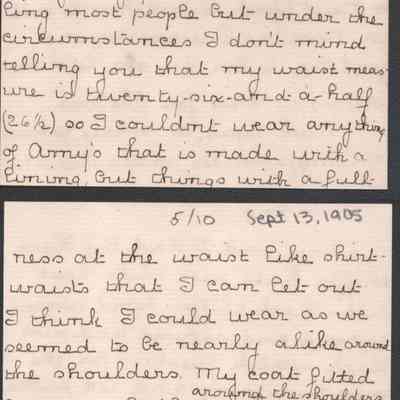 ling most people but under the
circumstances I don't mind
telling you that my waist meas-
ure is twenty-six-and-a-half
(26½) so I couldnt wear anything
of Amy's that is made with a
lining, but things with a full-
5/10 Sept 13, 1905
ness at the waist like shirt-
waists that I can let out
I think I could wear as we
seemed to be nearly alike around
the shoulders. My coat fitted
around the shoulders